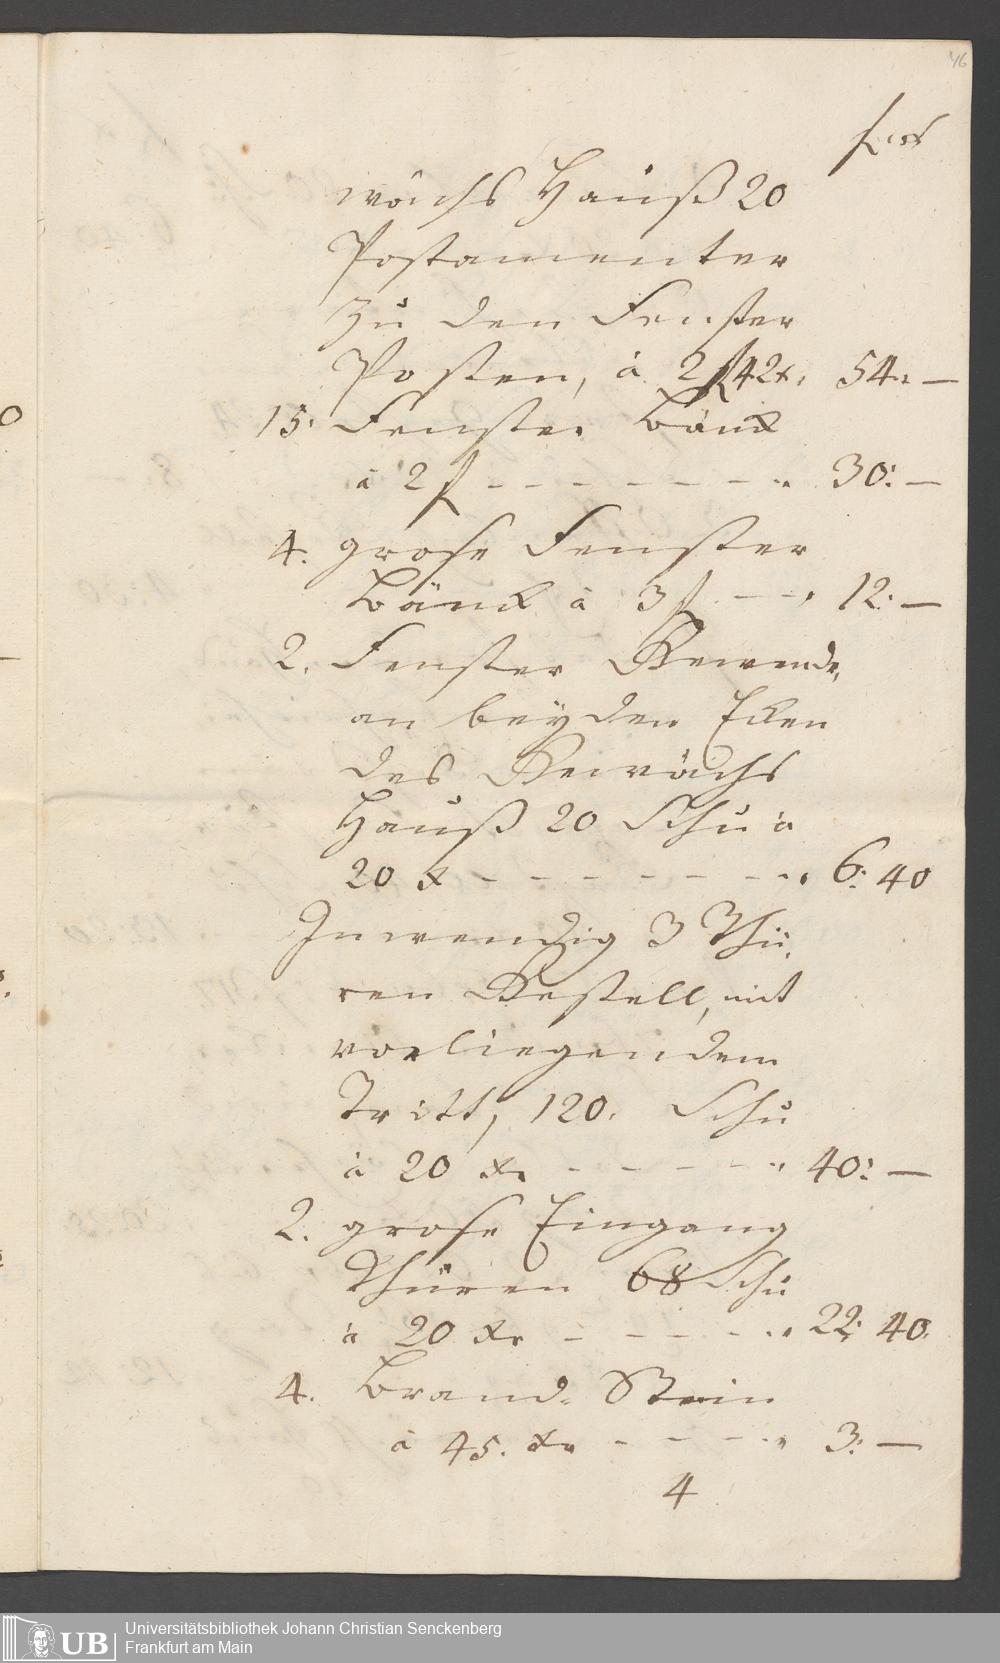 46
f xr
wächs Hauß 20
Postamenter
zu den Fenster
Posten, à 2 f 42 x. 54. —
15. Fenster Bänck
à 2 f - - - - - - - 30: —
4. grose Fenster
Bänck à 3 f. - - - 12: —
2. Fenster Gewende,
an beyden Ecken
des Gewächs
Hauß 20 Schu à
20 x - - - - - - - 6: 40
Inwendig 3 Thü,
ren Gestell, mit
vorliegendem
Tritt, 120. Schu
à 20 xr. - - - - - 40: —
2. grose Eingang
Thüren 68 Schu
à 20 xr - - - - - 22: 40.
4. Brand. Stein
à 45. xr - - - - 3: —
4
UB
Universitätsbibliothek Johann Christian Senckenberg
Frankfurt am Main